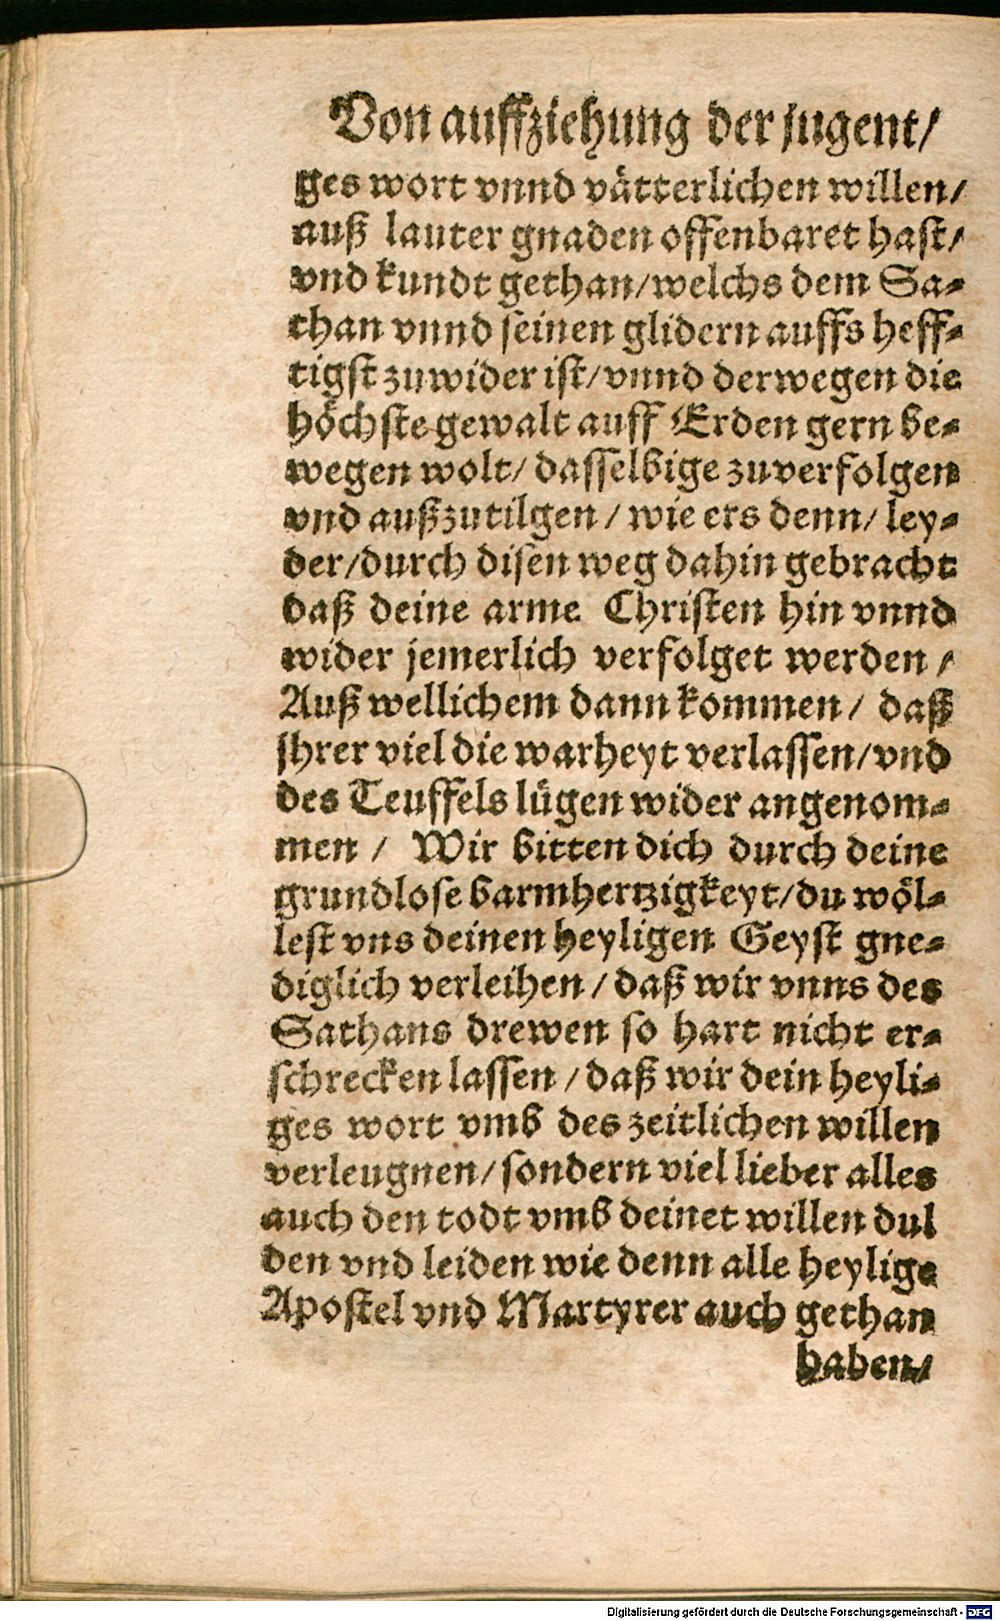 Von auffziehung der jugent/
ges wort vnnd vätterlichen willen/
auß lauter gnaden offenbaret hast/
vnd kundt gethan/welchs dem Sa-
than vnnd seinen glidern auffs heff-
tigst zuwider ist/vnnd derwegen die
höchste gewalt auff Erden gern be-
wegen wolt/ dasselbige zuverfolgen
vnd außzutilgen/ wie ers denn/ ley-
der/durch disen weg dahin gebracht
daß deine arme Christen hin vnnd
wider jemerlich verfolget werden/
Auß wellichem dann kommen/ daß
jhrer viel die warheyt verlassen/vnd
des Teuffels lügen wider angenom-
men/ Wir bitten dich durch deine
grundlose barmhertzigkeyt/du wöl-
lest vns deinen heyligen Geyst gne-
diglich verleihen/ daß wir vnns des
Sathans drewen so hart nicht er-
schrecken lassen/daß wir dein heyli-
ges wort vmb des zeitlichen willen
verleugnen/sondern viel lieber alles
auch den todt vmb deinet willen dul
den vnd leiden wie denn alle heylige
Apostel vnd Martyrer auch gethan
haben/
Digitalisierung gefördert durch die Deutsche Forschungsgemeinschaft - DFG